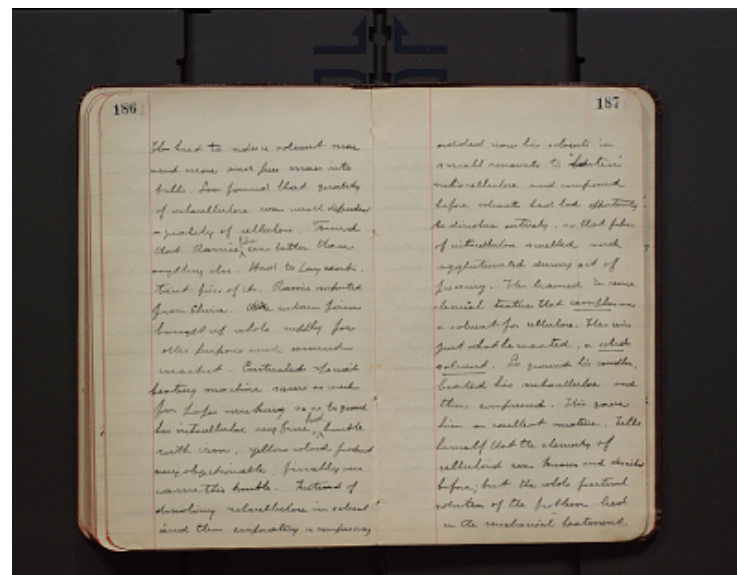 186
He had to reduce solvent more
and more and free mass into
balls. Soon found that quality
of nitrocellulose was much dependent
quality of cellulose. Found
that Ramie fibre was better than
anything else. Had to pay
price of it. Ramie imported
from China. When certain firms
bought up whole supply for
other purposes and cornered
market. Constructed special
beating machine same as used
for paper making so as to grind
his nitrocellulose very fine, had trouble
with iron, yellow colored product
very objectionable, finally over
came this trouble. Instead of
dissolving nitrocellulose in solvent
and then evaporating a compressing
187
added now his solvents in
small amounts to
nitrocellulose and compressed
before solvent had had opportunity
to dissolve entirely, so that fibres
of nitrocellulose swelled and
agglutinated during act of
pressing. Then learned in some
chemical treatise that camphor was
a solvent for cellulose. This was
just what he wanted, a solid
solvent. So ground his camphor,
heated his nitrocellulose and
then compressed. This gave
him an excellent mixture. Tells
himself that the elements of
celluloid were known and described
before; but the whole practical
solution of the problem lied
in the mechanical treatment.